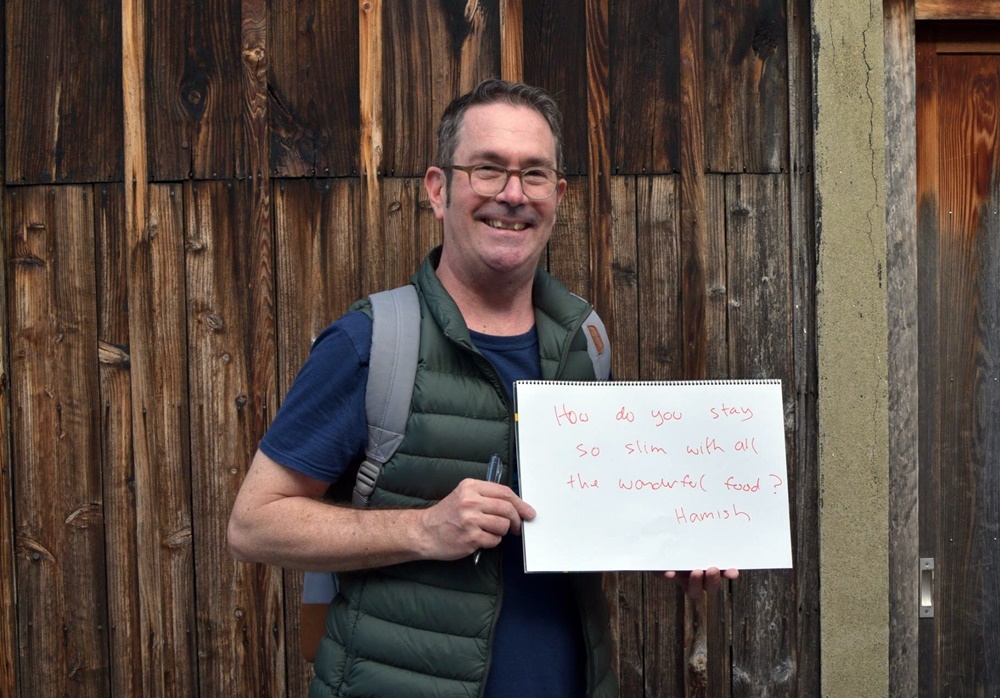 How do you stay
so slim with all
the wonderful food?
Hamish